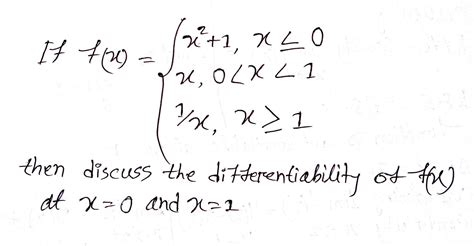 If f(x) = { x²+1, x ≤ 0
x, 0<x<1
1/x, x ≥ 1
then discuss the differentiability of f(x)
at x=0 and x=1